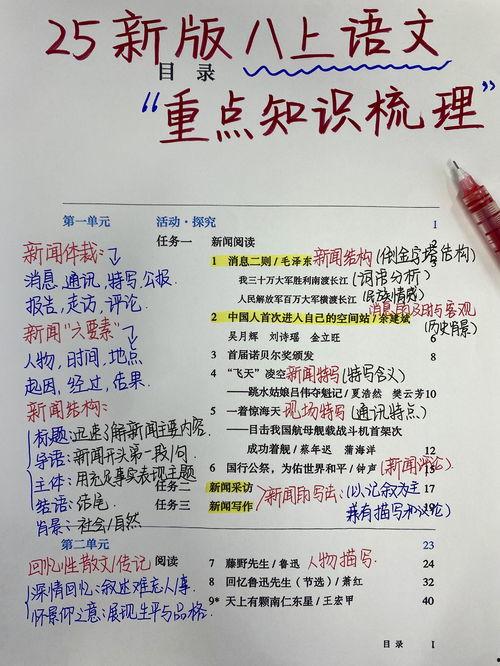 25新版八上语文
目录
“重点知识梳理”
第一单元 活动·探究 1
任务一 新闻阅读
新闻体裁:
消息,通讯,特写,公报,
报告,走访,评论.
新闻“六要素”
人物,时间,地点
起因,经过,结果.
新闻结构:
标题:迅速了解新闻主要内容.
导语:新闻开头第一段/句.
主体:用充足事实表现主题
结语:结尾.
背景:社会/自然
1 消息二则/毛泽东 新闻结构(倒金字塔结构)
我三十万大军胜利南渡长江(词语分析)
人民解放军百万大军横渡长江(民族情感)
2 中国人首次进入自己的空间站/余建斌
吴月辉 刘诗瑶 金立旺 6
(历史背景)
3 首届诺贝尔奖颁发 8
4 “飞天”凌空 新闻特写(特写含义)
——跳水姑娘吕伟夺魁记/夏浩然 樊云芳 10
5 一着惊海天 现场特写(通讯特点)
——目击我国航母舰载战斗机首架次
成功着舰/蔡年迟 蒲海洋 12
6 国行公祭,为佑世界和平/钟声(新闻评论)
任务二 新闻采访 17
任务三 新闻写作 19
新闻的写法:(以记叙为主
兼有描写和议论)
第二单元 23
回忆性散文/传记 阅读
深情回忆:叙述难忘人事
怀景仰之意:展现生平与品格.
7 藤野先生/鲁迅 人物描写. 24
8 回忆鲁迅先生(节选)/萧红 32
9* 天上有颗南仁东星/王宏甲 40
目录 1